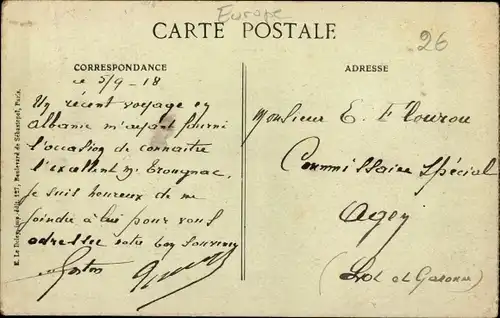 Europe
CARTE POSTALE
26
CORRESPONDANCE
ce 5/9 - 18
Un récent voyage en
Albanie m'ayant fourni
l'occasion de connaitre
l'excellent Mr
je suis heureux de me
joindre à lui pour vous
adresser notre bon souvenir
Gaston
ADRESSE
Monsieur E. Flourou
Commissaire Spécial
Agen
(Lot et Garonne)
E. Le Deley, imp.-édit., 127, Boulevard de Sébastopol, Paris.